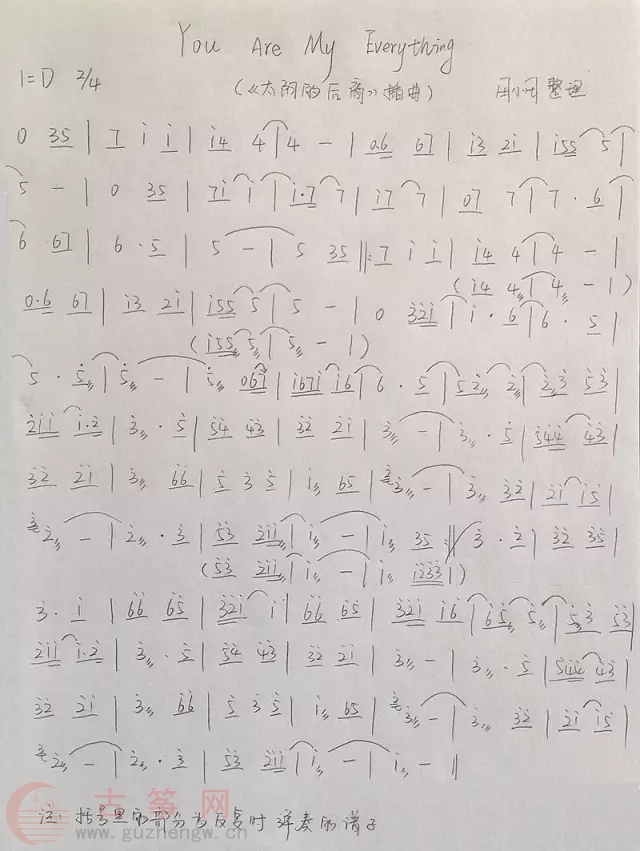 You Are My Everything
1=D 2/4
(《太阳的后裔》插曲)
周小周 整理
0 35 | 7 i i | i4 4 | 4 - | 0.6 67 | i3 2i | i55 5 |
5 - | 0 35 | 7i i | i.7 7 | i7 7 | 07 7 | 7 . 6 |
6 67 | 6 . 5 | 5 - | 5 35 ||: 7 i i | i4 4 | 4 - |
(i4 4 | 4 - |)
0.6 67 | i3 2i | i55 5 | 5 - | 0 32i | i . 6 | 6 . 5 |
(i55 5 | 5 - |)
5 . 5 | 5 - | 5 067 | i67i i6 | 6 . 5 | 52 2 | 2 3 53 |
2ii i.2 | 3 . 5 | 54 43 | 32 2i | 3 - | 3 . 5 | 544 43 |
32 2i | 3 66 | 5 3 5 | i 65 | 3 - | 3 32 | 2i i5 |
2 - | 2 . 3 | 53 2ii | i - | i 35 :|| 3 . 2 | 32 35 |
(53 2ii | i - | i i233 |)
3 . i | 66 65 | 32i i | 66 65 | 32i i6 | 65 5 | 5 3 53 |
2ii i.2 | 3 . 5 | 54 43 | 32 2i | 3 - | 3 . 5 | 544 43 |
32 2i | 3 66 | 5 3 5 | i 65 | 3 - | 3 32 | 2i i5 |
2 - | 2 . 3 | 53 2ii | i - | i - ||
注：括号里的部分为反复时弹奏的谱子
古筝网
www.guzhengw.cn